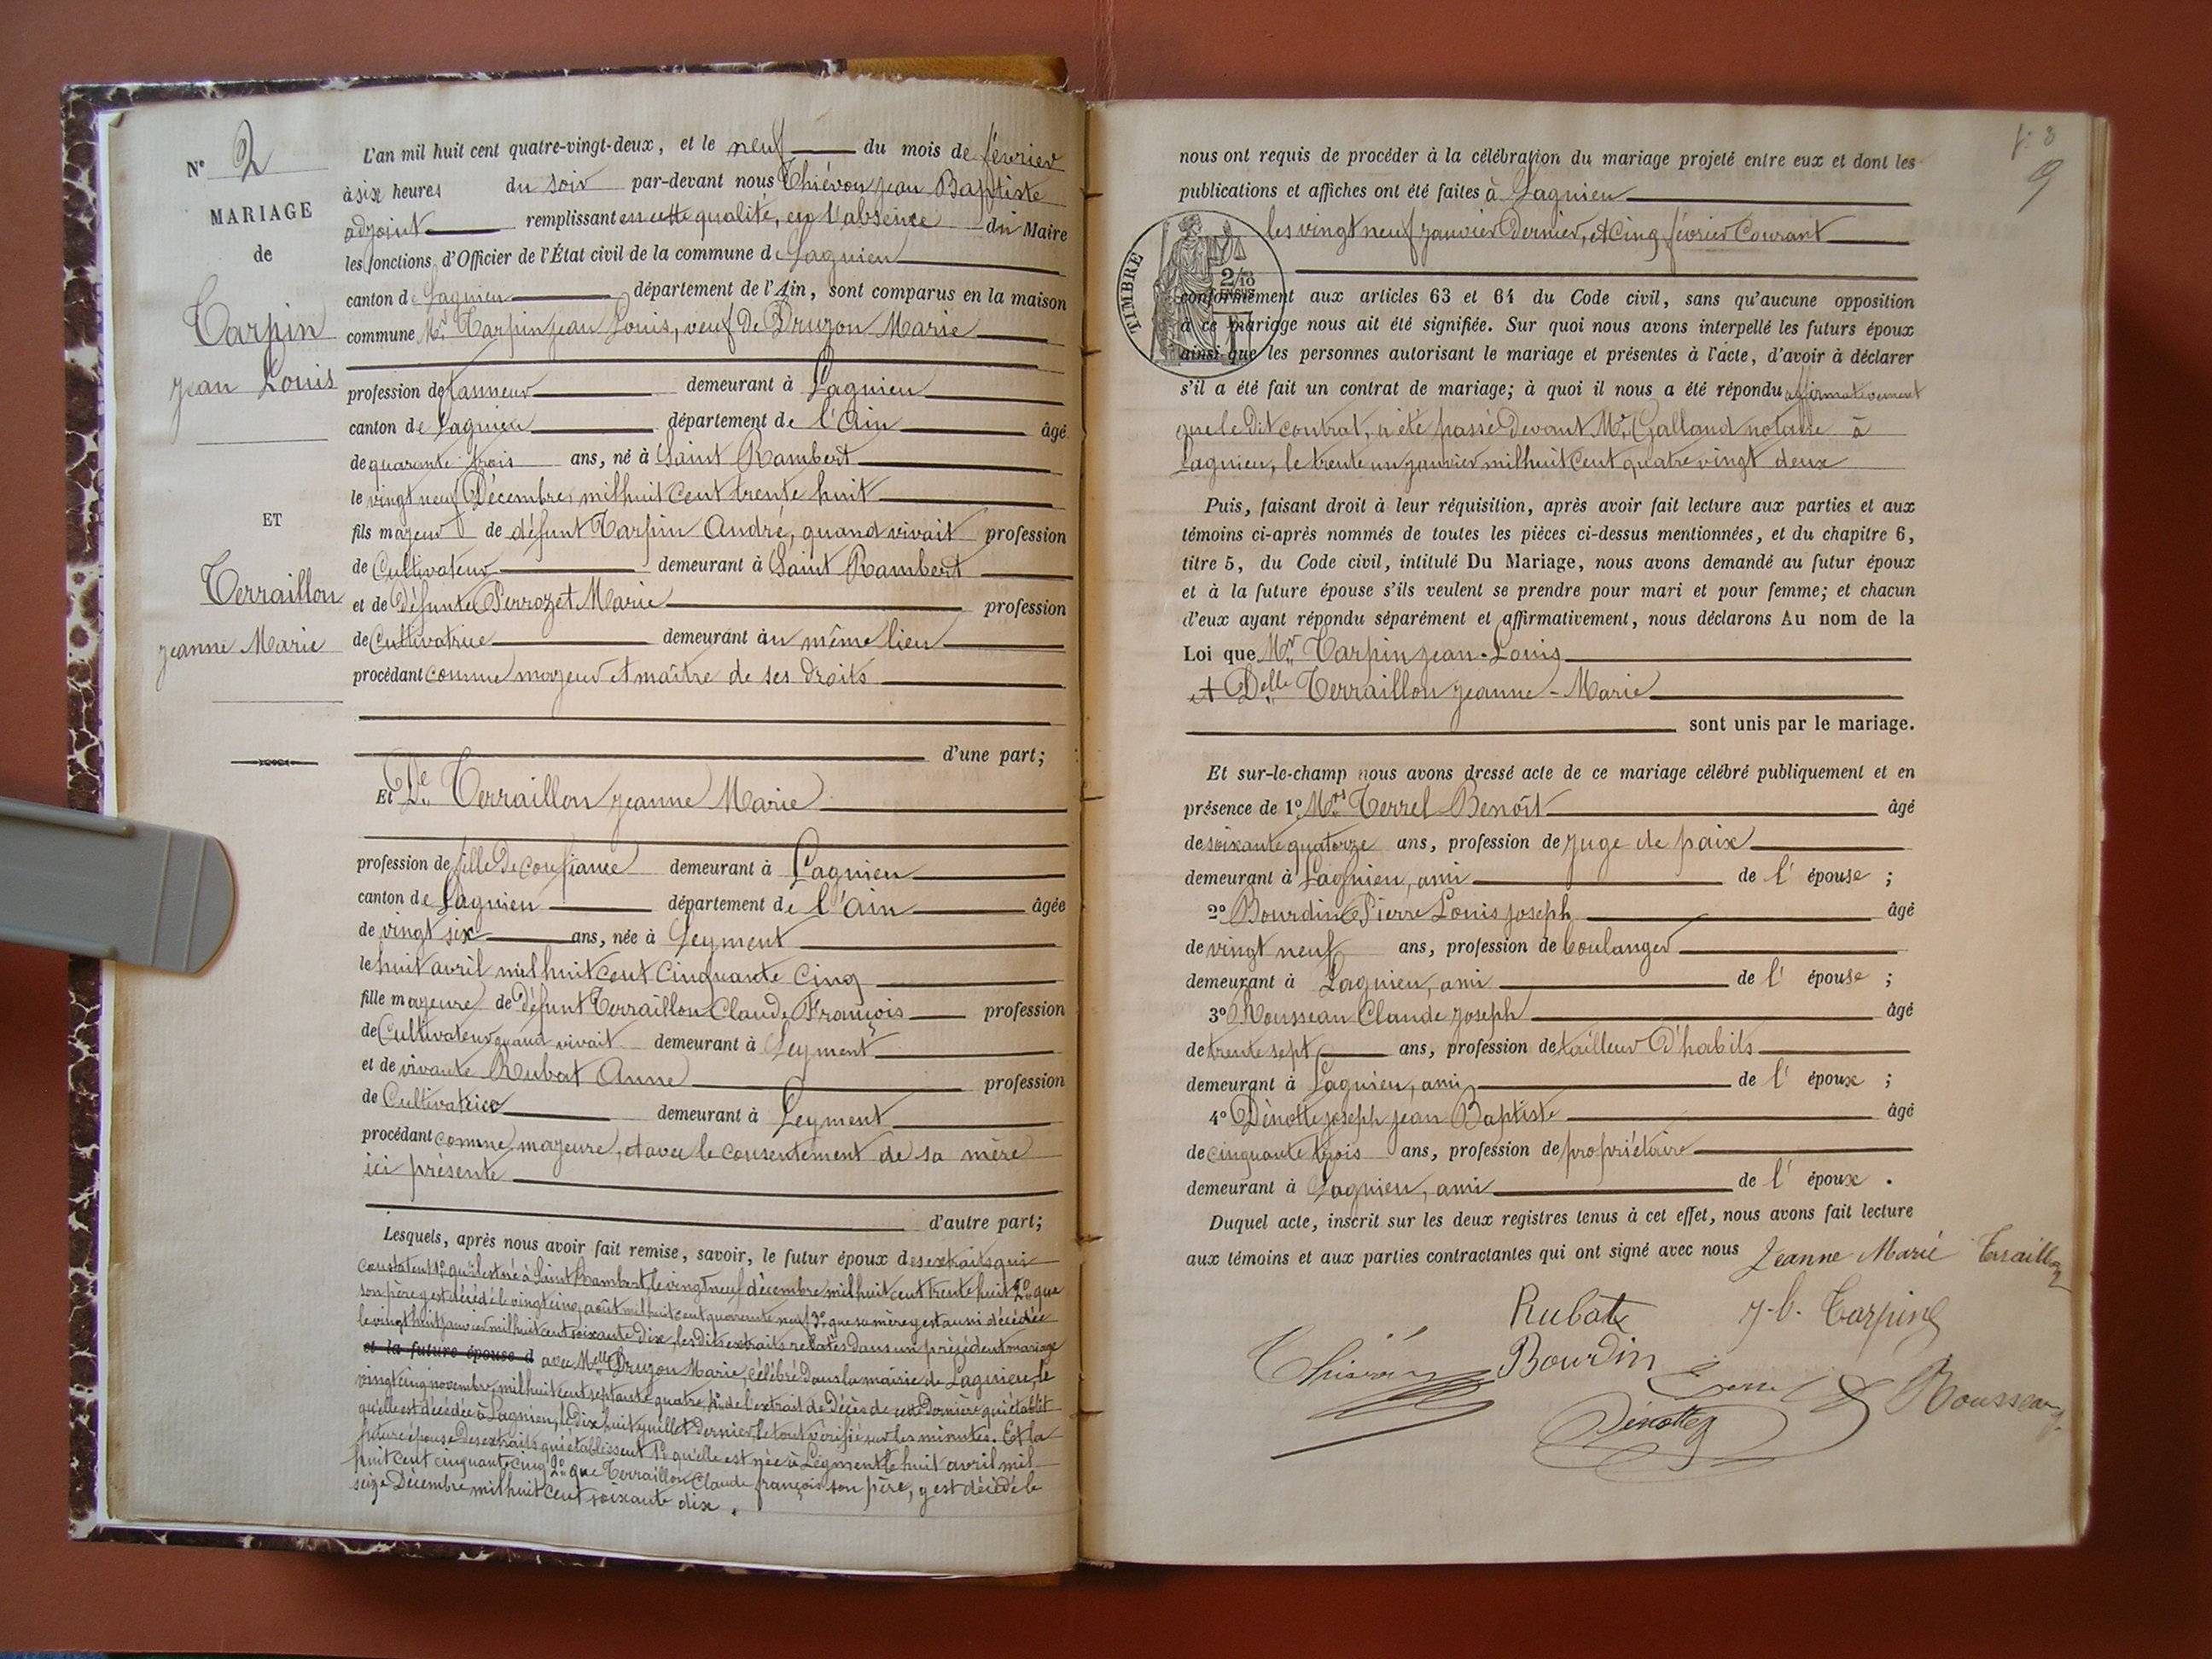 N° 2
MARIAGE
de
Tarpin
Jean Louis
ET
Terraillon
Jeanne Marie
L'an mil huit cent quatre-vingt-deux, et le neuf du mois de février
à six heures du soir par-devant nous Thiévon Jean Baptiste
adjoint remplissant en cette qualité, en l'absence du Maire
les fonctions d'Officier de l'État civil de la commune de Lagnieu
canton de Lagnieu département de l'Ain, sont comparus en la maison
commune Mr. Tarpin Jean Louis, veuf de Druzon Marie
profession de tanneur demeurant à Lagnieu
canton de Lagnieu département de l'Ain âgé
de quarante trois ans, né à Saint Rambert
le vingt neuf Décembre milhuit cent trente huit
fils majeur de défunt Tarpin André, quand vivait profession
de Cultivateur demeurant à Saint Rambert
et de défunte Perrozet Marie profession
de Cultivatrice demeurant au même lieu
procédant comme majeur et maître de ses droits
d'une part;
Et De. Terraillon Jeanne Marie
profession de fille de confiance demeurant à Lagnieu
canton de Lagnieu département de l'Ain âgée
de vingt six ans, née à Leyment
le huit avril mil huit cent cinquante cinq
fille majeure de défunt Terraillon Claude François profession
de Cultivateur quand vivait demeurant à Leyment
et de vivante Rubat Anne profession
de Cultivatrice demeurant à Leyment
procédant comme majeure, et avec le consentement de sa mère
ici présente
d'autre part;
Lesquels, après nous avoir fait remise, savoir, le futur époux des extraits qui
constatent 1° qu'il est né à Saint Rambert, le vingt neuf décembre mil huit cent trente huit 2° que
son père y est décédé le vingt cinq août mil huit cent quarante neuf 3° que sa mère y est aussi décédée
le vingt huit janvier mil huit cent soixante dix, les dits extraits relatés dans un précédent mariage
et la future épouse d avec Melle Druzon Marie, célébré dans la mairie de Lagnieu, le
vingt cinq novembre mil huit cent septante quatre, 4° de l'extrait de décès de cette dernière qui établit
qu'elle est décédée à Lagnieu, le dix huit juillet dernier, le tout vérifié sur les minutes. Et la
future épouse des extraits qui établissent 1° qu'elle est née à Leyment le huit avril mil
huit cent cinquante cinq 2° que Terraillon Claude françois son père, y est décédé le
seize Décembre mil huit cent soixante dix.
f. 8
9
nous ont requis de procéder à la célébration du mariage projeté entre eux et dont les
publications et affiches ont été faites à Lagnieu
les vingt neuf janvier dernier, et cinq février courant
TIMBRE
2/10
EN SUS
conformément aux articles 63 et 64 du Code civil, sans qu'aucune opposition
à ce mariage nous ait été signifiée. Sur quoi nous avons interpellé les futurs époux
ainsi que les personnes autorisant le mariage et présentes à l'acte, d'avoir à déclarer
s'il a été fait un contrat de mariage; à quoi il nous a été répondu affirmativement
que le dit contrat, a été passé devant Mr. Galland notaire à
Lagnieu, le trente un janvier mil huit cent quatre vingt deux
Puis, faisant droit à leur réquisition, après avoir fait lecture aux parties et aux
témoins ci-après nommés de toutes les pièces ci-dessus mentionnées, et du chapitre 6,
titre 5, du Code civil, intitulé Du Mariage, nous avons demandé au futur époux
et à la future épouse s'ils veulent se prendre pour mari et pour femme; et chacun
d'eux ayant répondu séparément et affirmativement, nous déclarons Au nom de la
Loi que Mr. Tarpin Jean-Louis
et Delle Terraillon Jeanne-Marie
sont unis par le mariage.
Et sur-le-champ nous avons dressé acte de ce mariage célébré publiquement et en
présence de 1° Mrs Terrel Benoît âgé
de soixante quatorze ans, profession de juge de paix
demeurant à Lagnieu, ami de l' épouse ;
2° Bourdin Pierre Louis Joseph âgé
de vingt neuf ans, profession de boulanger
demeurant à Lagnieu, ami de l' épouse ;
3° Rousseau Claude Joseph âgé
de trente sept ans, profession de tailleur d'habits
demeurant à Lagnieu, ami de l' époux ;
4° Dénotte Joseph Jean Baptiste âgé
de cinquante trois ans, profession de propriétaire
demeurant à Lagnieu, ami de l' époux .
Duquel acte, inscrit sur les deux registres tenus à cet effet, nous avons fait lecture
aux témoins et aux parties contractantes qui ont signé avec nous Jeanne Marie Teraillon
Rubat J-L. Tarpin
Thiévon Bourdin Rousseau
Dénotte